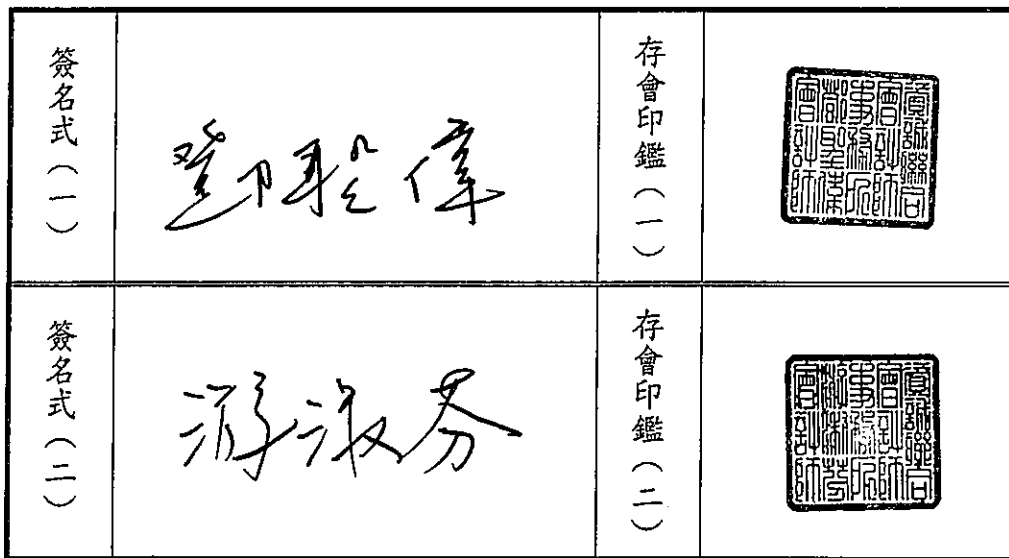 簽名式（一）
鄧聖偉
存會印鑑（一）
資誠聯合
會計師
事務所
鄧聖偉
會計師
簽名式（二）
游淑芬
存會印鑑（二）
資誠聯合
會計師
事務所
游淑芬
會計師